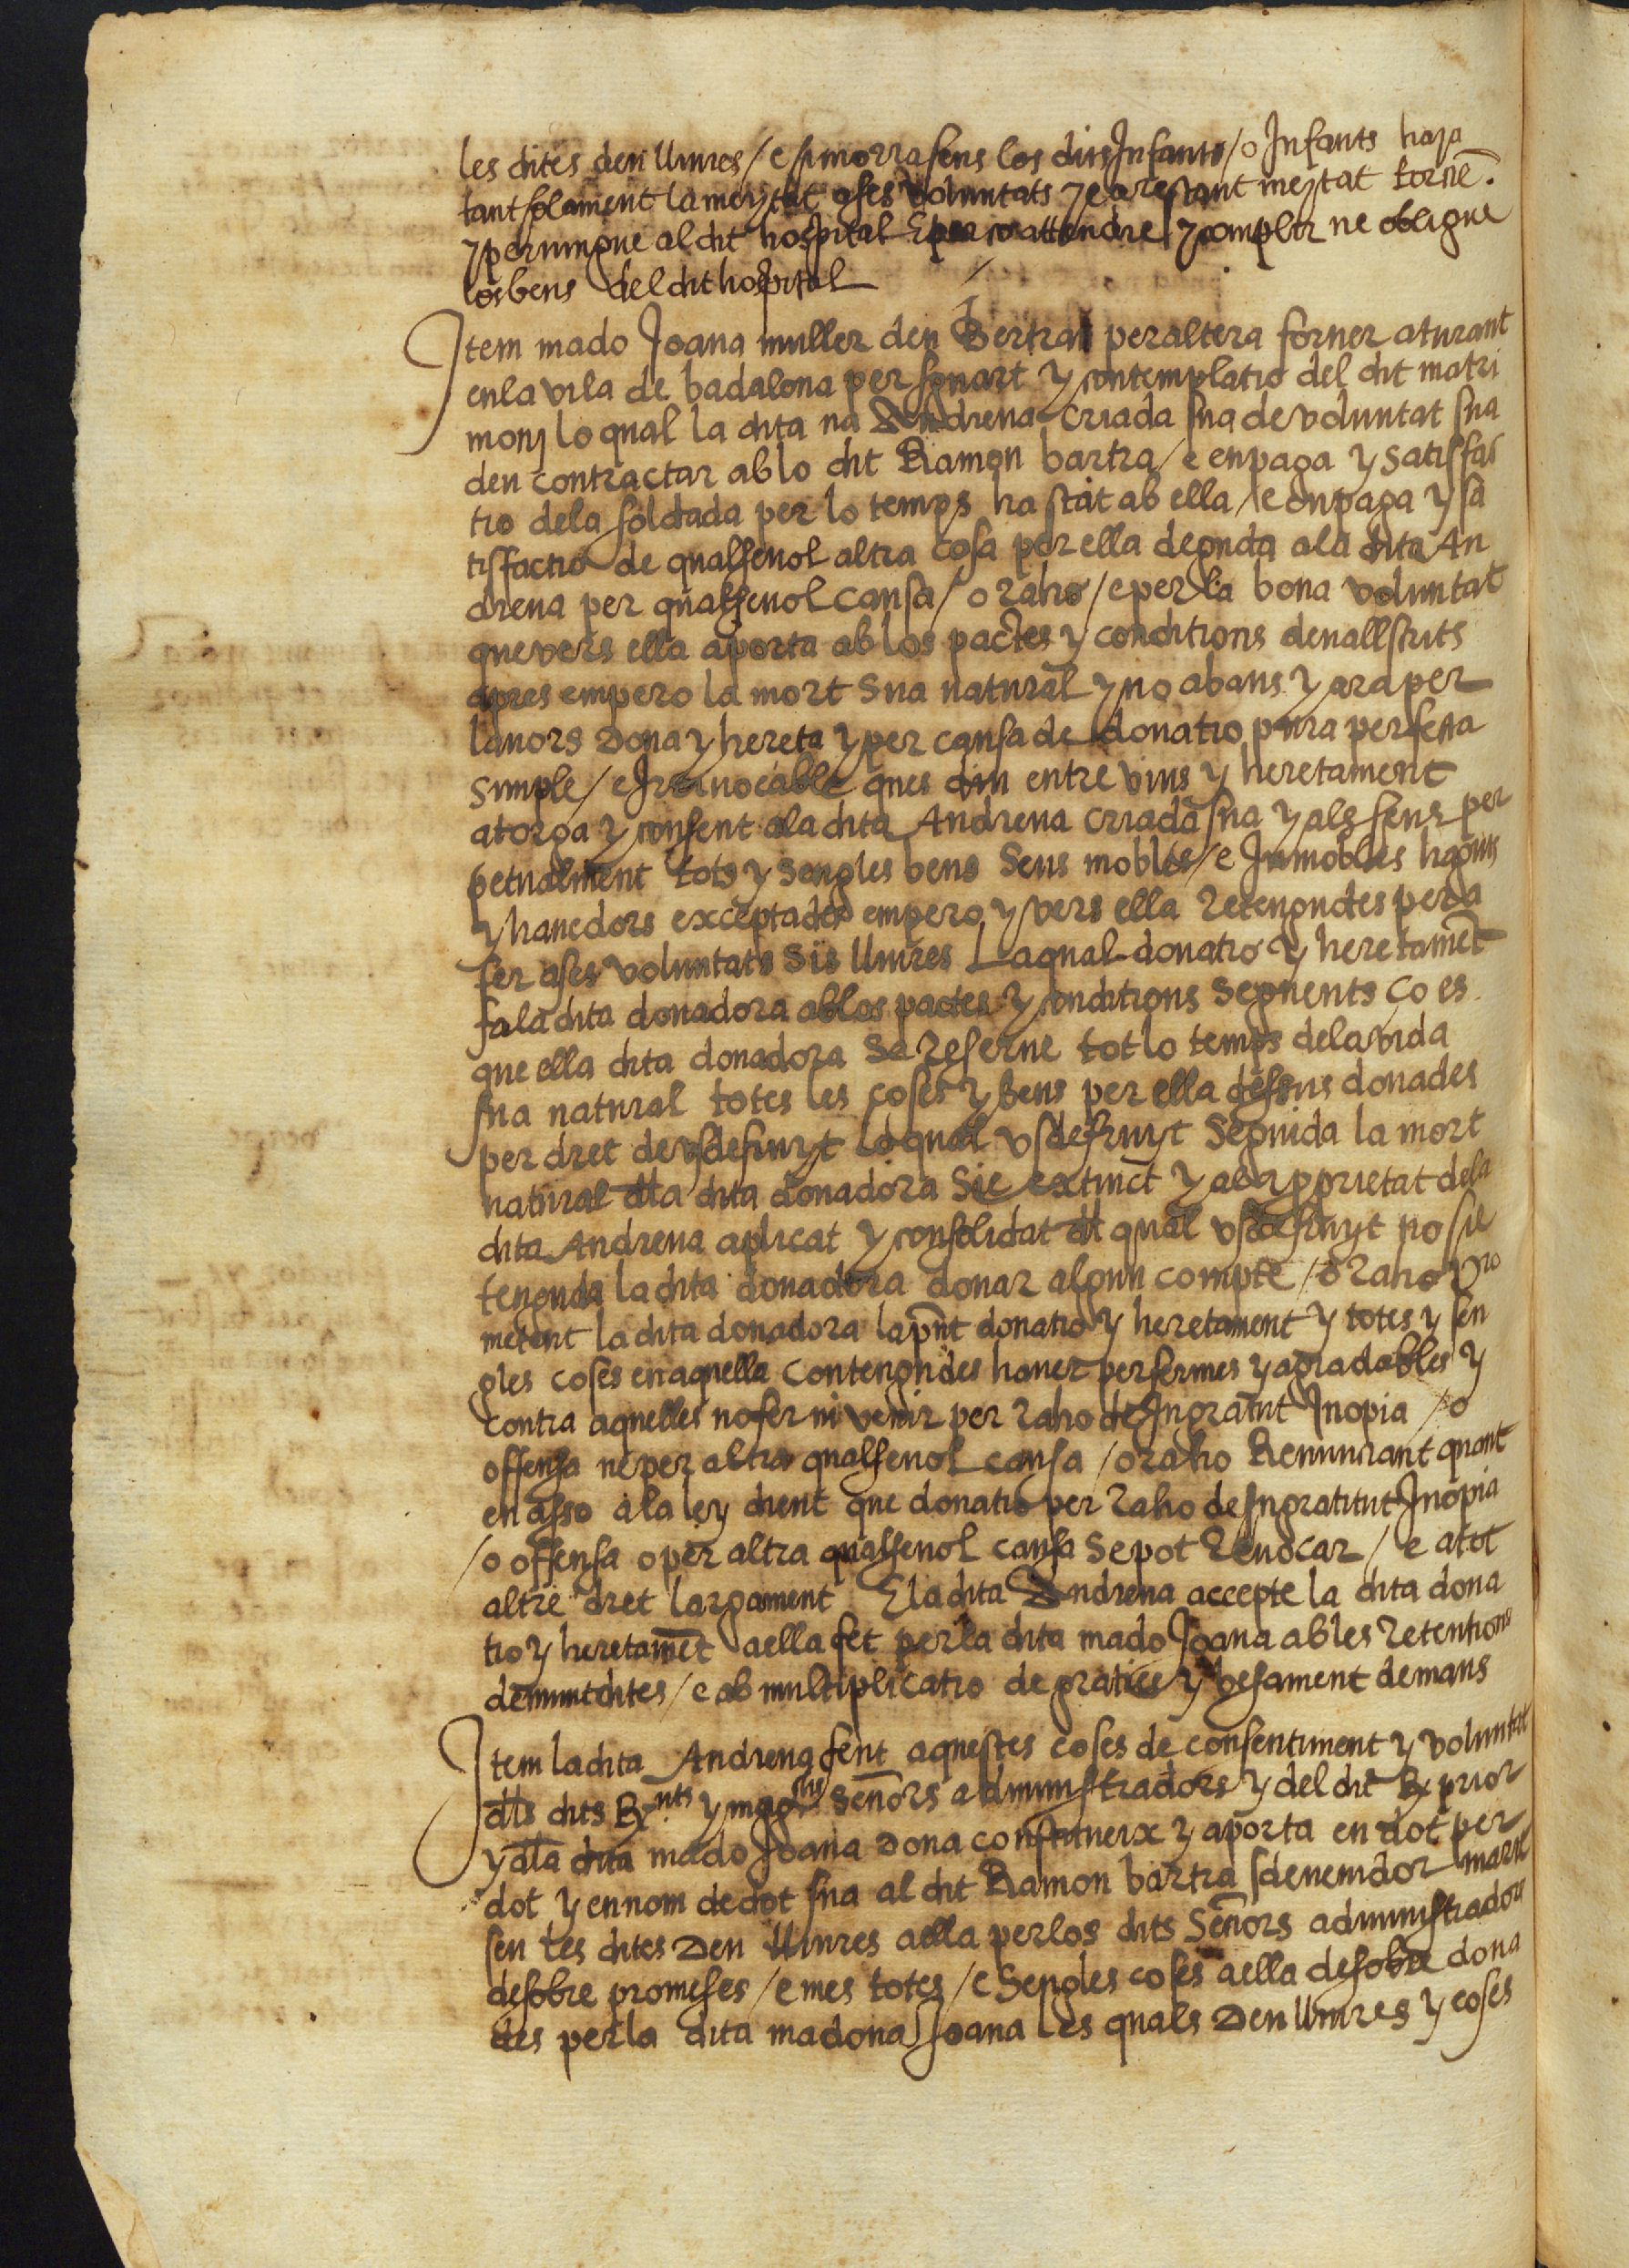 les dites deu lliures / e si morra sens los dits Infants / o Infants haja
tant solament la meytat a ses voluntats y la restant meytat torne.
y pervingue al dit hospital E per ço attendre y complir ne obligue
los bens del dit hospital
Item mado Joana muller den Bertran peraltera forner aturant
en la vila de badalona per sguart y contemplatio del dit matri
monj lo qual la dita na Andreua criada sua de voluntat sua
deu contractar ab lo dit Ramon bartra / e en paga y satisfac
tio dela soldada per lo temps ha stat ab ella / e en paga y sa
tisfactio de qualsevol altra cosa per ella deguda ala dita An
dreua per qualsevol causa / o raho / e per la bona voluntat
que vers ella aporta ab los pactes y conditions devall scrits
apres empero la mort sua natural y no abans y ara per
lavors dona y hereta y per causa de donatio pura perfeta
simple / e Irrevocable ques diu entre vius y heretament
atorga y consent ala dita Andreua criada sua y als seus per
petualment tots y sengles bens seus mobles / e Inmobles haguts
y havedors exceptades empero y vers ella retengudes pera
fer a ses voluntats sis lliures La qual donatio y heretamēt
fa la dita donadora ab los pactes y conditions seguents ço es
que ella dita donadora se reserve tot lo temps dela vida
sua natural totes les coses y bens per ella dessus donades
per dret de usdefruyt lo qual usdefruyt seguida la mort
natural dla dita donadora sie extinct y ab la pprietat dela
dita Andreua aplicat y consolidat dl qual usdefruyt no sie
tenguda la dita donadora donar algun compte / o raho Pro
metent la dita donadora la pnt donatio y heretament y totes y sen
gles coses en aquella contengudes haver per fermes y agradables y
contra aquelles no fer ni venir per raho de Ingratitut Inopia / o
offensa ne per altra qualsevol causa / o raho Renuntiant quant
en asso a la ley dient que donatio per raho de Ingratitut Inopia
/ o offensa o per altra qualsevol causa se pot revocar / e a tot
altre dret largament E la dita Andreua accepte la dita dona
tio y heretamēt a ella fet per la dita mado Joana ab les retentions
demunt dites / e ab multiplicatio de graties y besament de mans
Item la dita Andreua fent aquestes coses de consentiment y voluntat
dls dits Rnts y magchs señors administradors y del dit R. prior
y dla dita mado Joana dona constitueix y aporta en dot per
dot y en nom de dot sua al dit Ramon bartra sdevenidor marit
seu les dites deu lliures a ella per los dits señors administradors
desobre promeses / e mes totes / e sengles coses a ella desobre dona
des per la dita madona Joana les quals deu lliures y coses